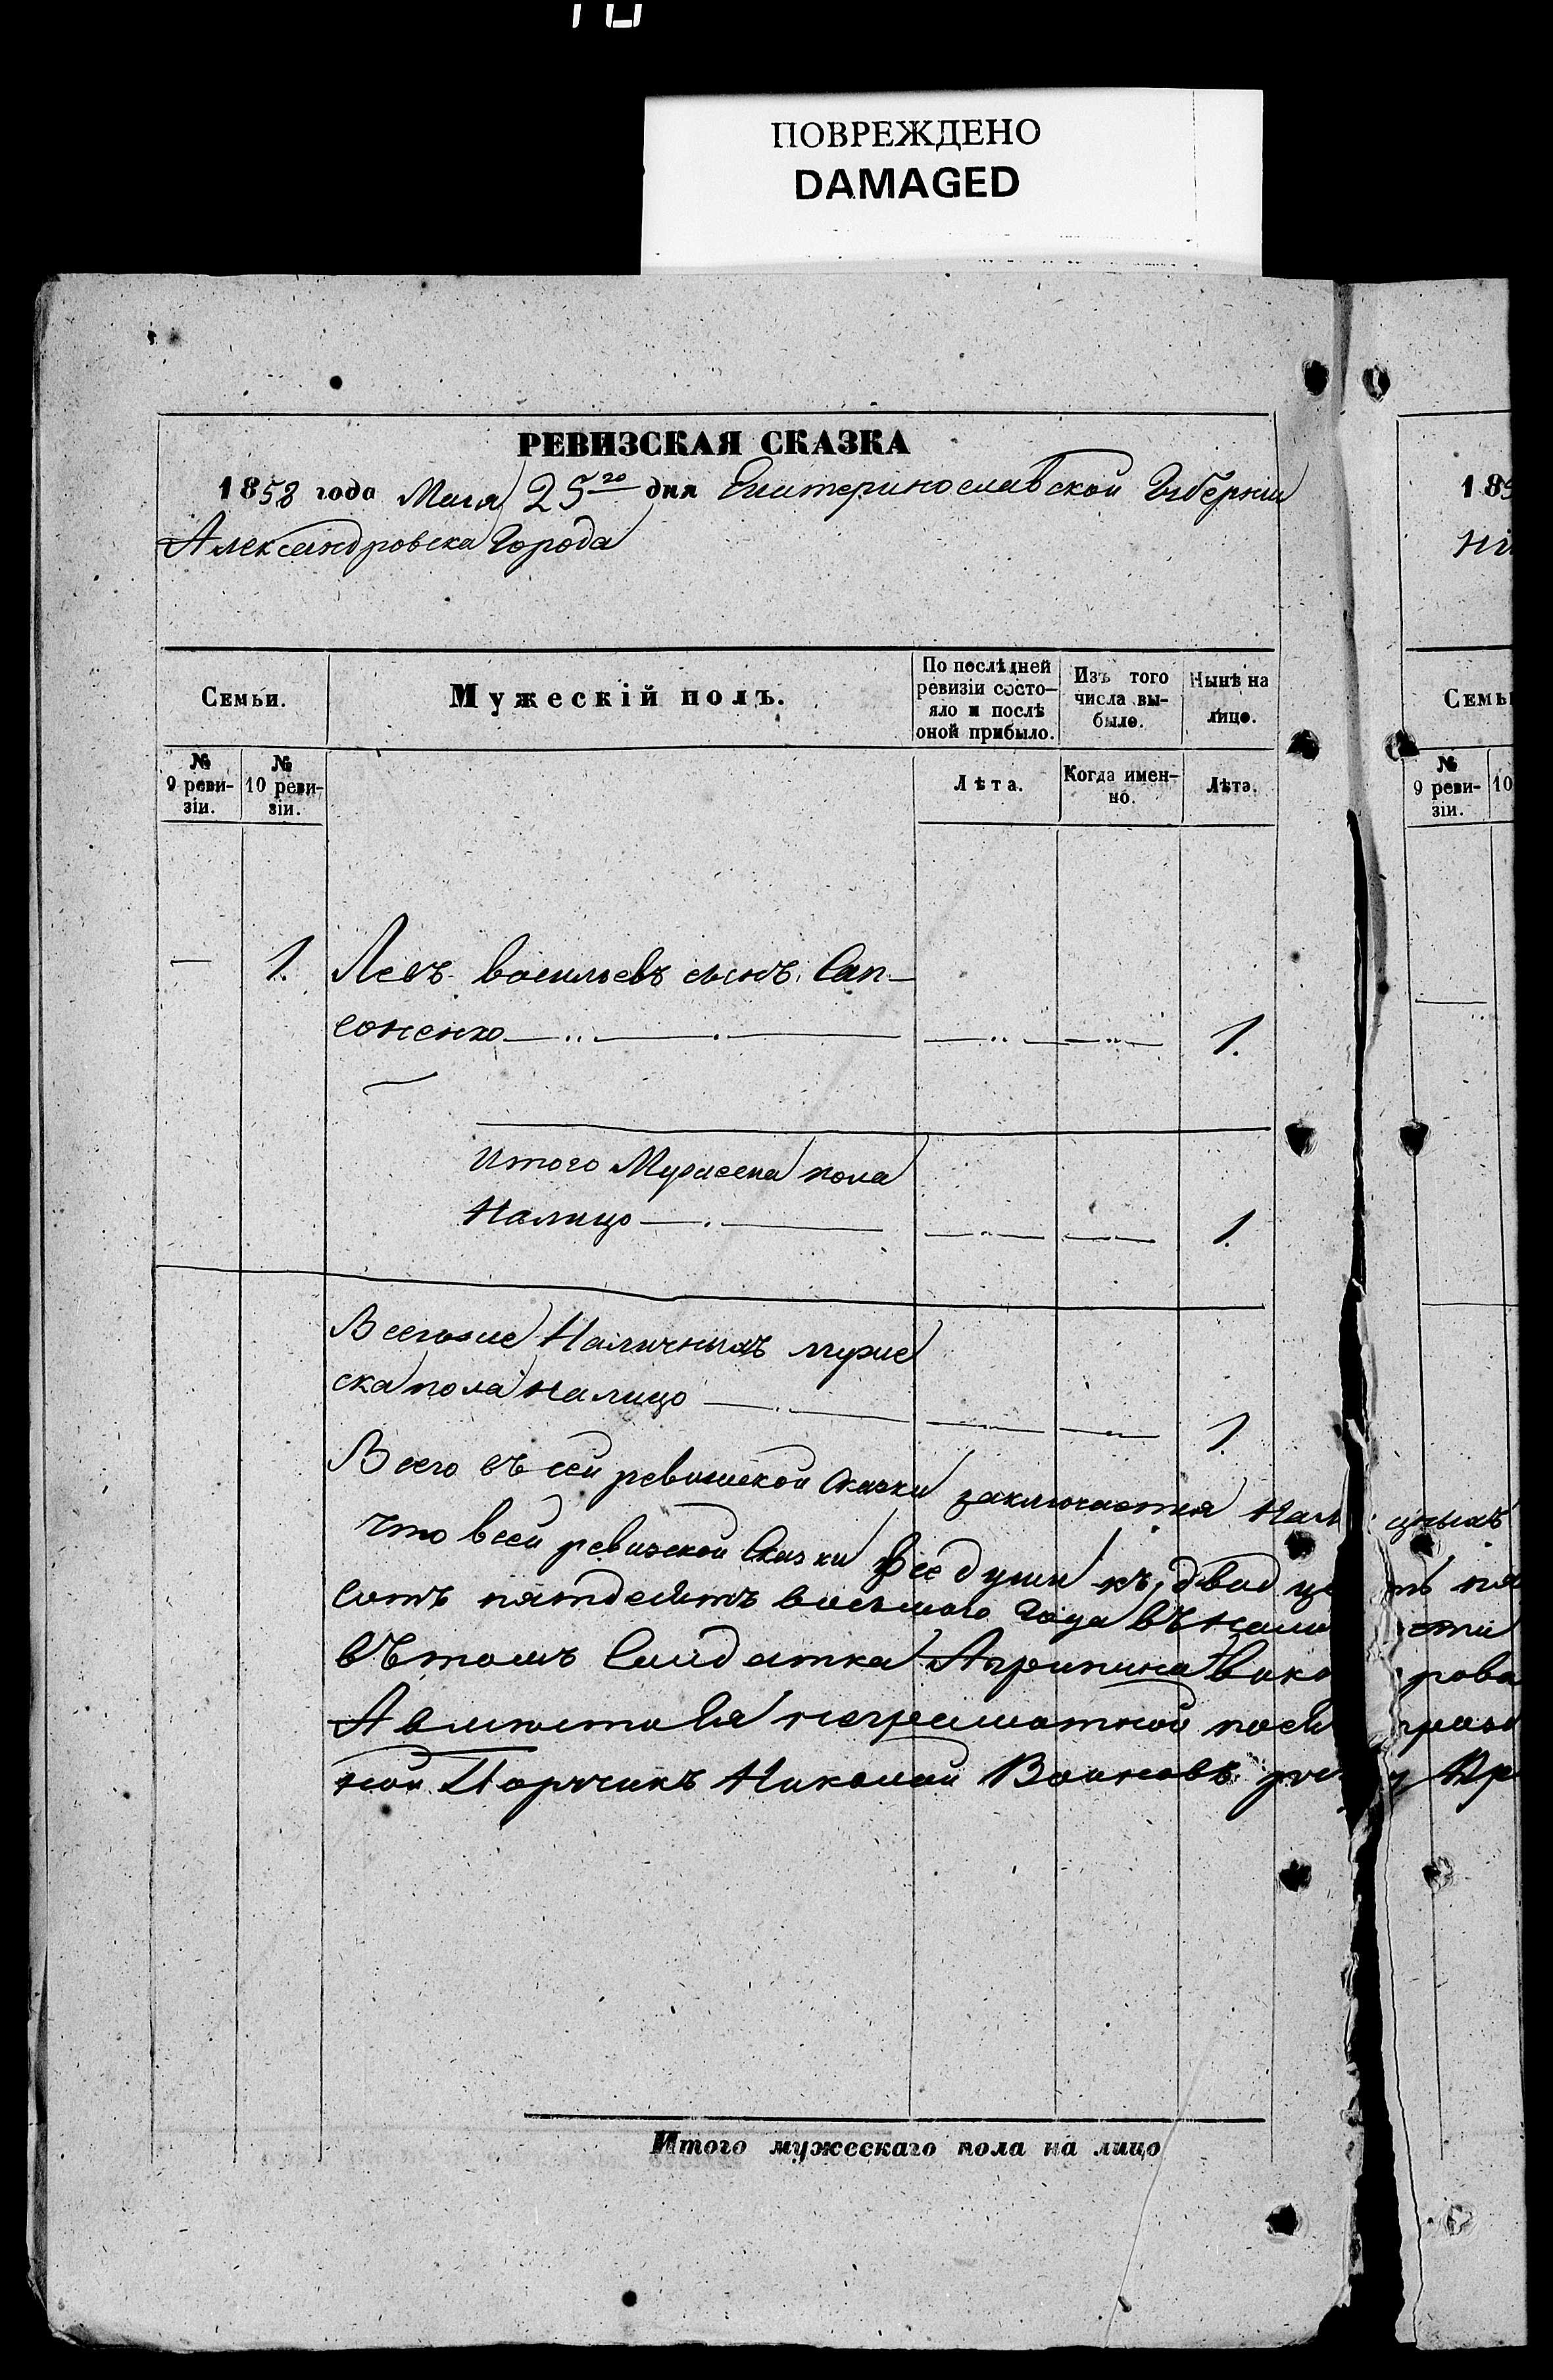 ПОВРЕЖДЕНО
DAMAGED
РЕВИЗСКАЯ СКАЗКА
1858 года Мая 25го дня Екатеринославской Губернии
Александровска Города
185
Семьи.
Мужескій полъ.
По послѣдней ревизіи состо-
яло и послѣ
оной прибыло.
Изъ того
числа вы-
было.
Нынѣ на
лицо.
Семьи
№
9 реви-
зіи.
№
10 реви-
зіи.
Лѣта.
Когда имен-
но.
Лѣта.
№
9 реви-
зіи.
10
— 1. Левъ васильевъ сынъ Сап-
соненко 1.
Итого Мужеска пола
Налицо 1.
Всегоже Наличныхъ муже
ска пола налицо 1.
Всего въ сей ревизской Сказки заключается
что всей ревизской Сказки все души къ двадца ть пя
сотъ пятдесятъ восьмого года въ нали сти
въ томъ Салдатка Агрипина
А вместо Ея неграмотной
ной Поручикъ Николай Воиновъ
Итого мужескаго пола на лицо